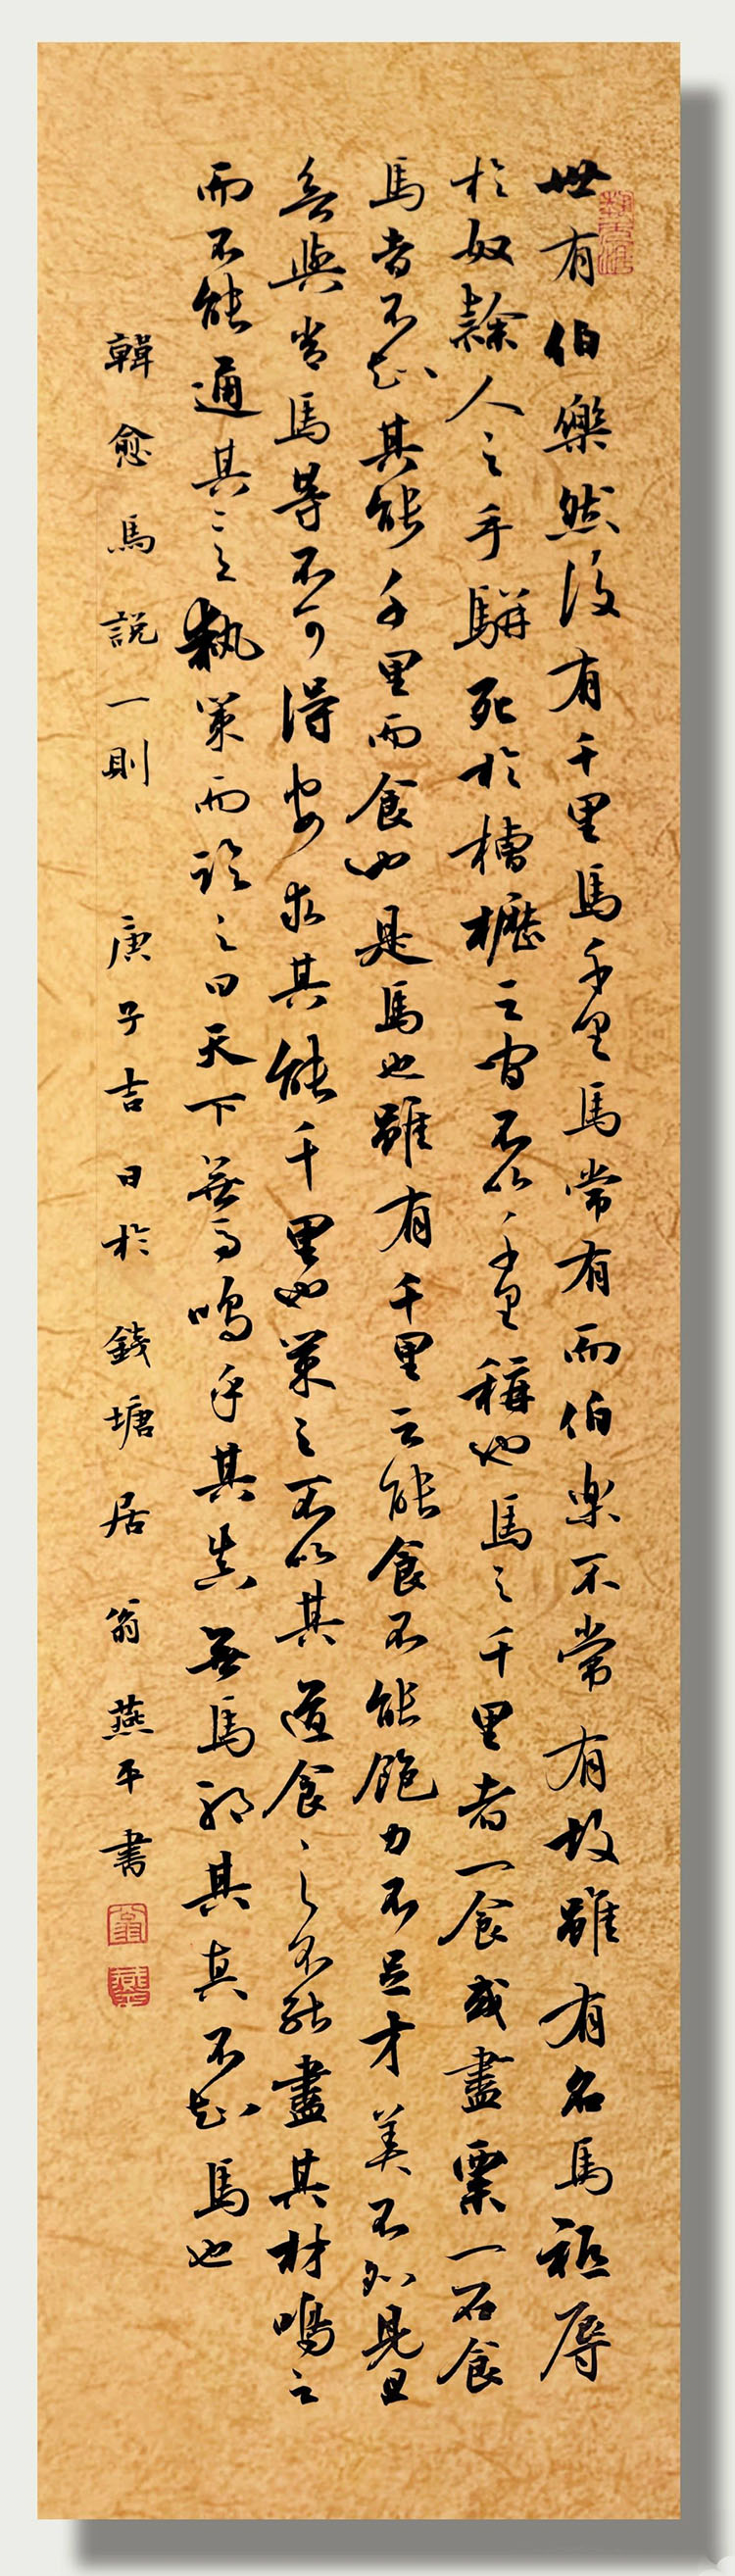 世有伯樂然後有千里馬千里馬常有而伯楽不常有故雖有名馬祗辱
於奴隸人之手駢死於槽櫪之間不以千里稱也馬之千里者一食或盡粟一石食
馬者不知其能千里而食也是馬也雖有千里之能食不能飽力不足才美不外見且
欲與常馬等不可得安求其能千里也策之不以其道食之不能盡其材鳴之
而不能通其意執策而臨之曰天下無馬鳴乎其真無馬邪其真不知馬也
韓愈馬説一則 庚子吉日於錢塘居 翁燕平書